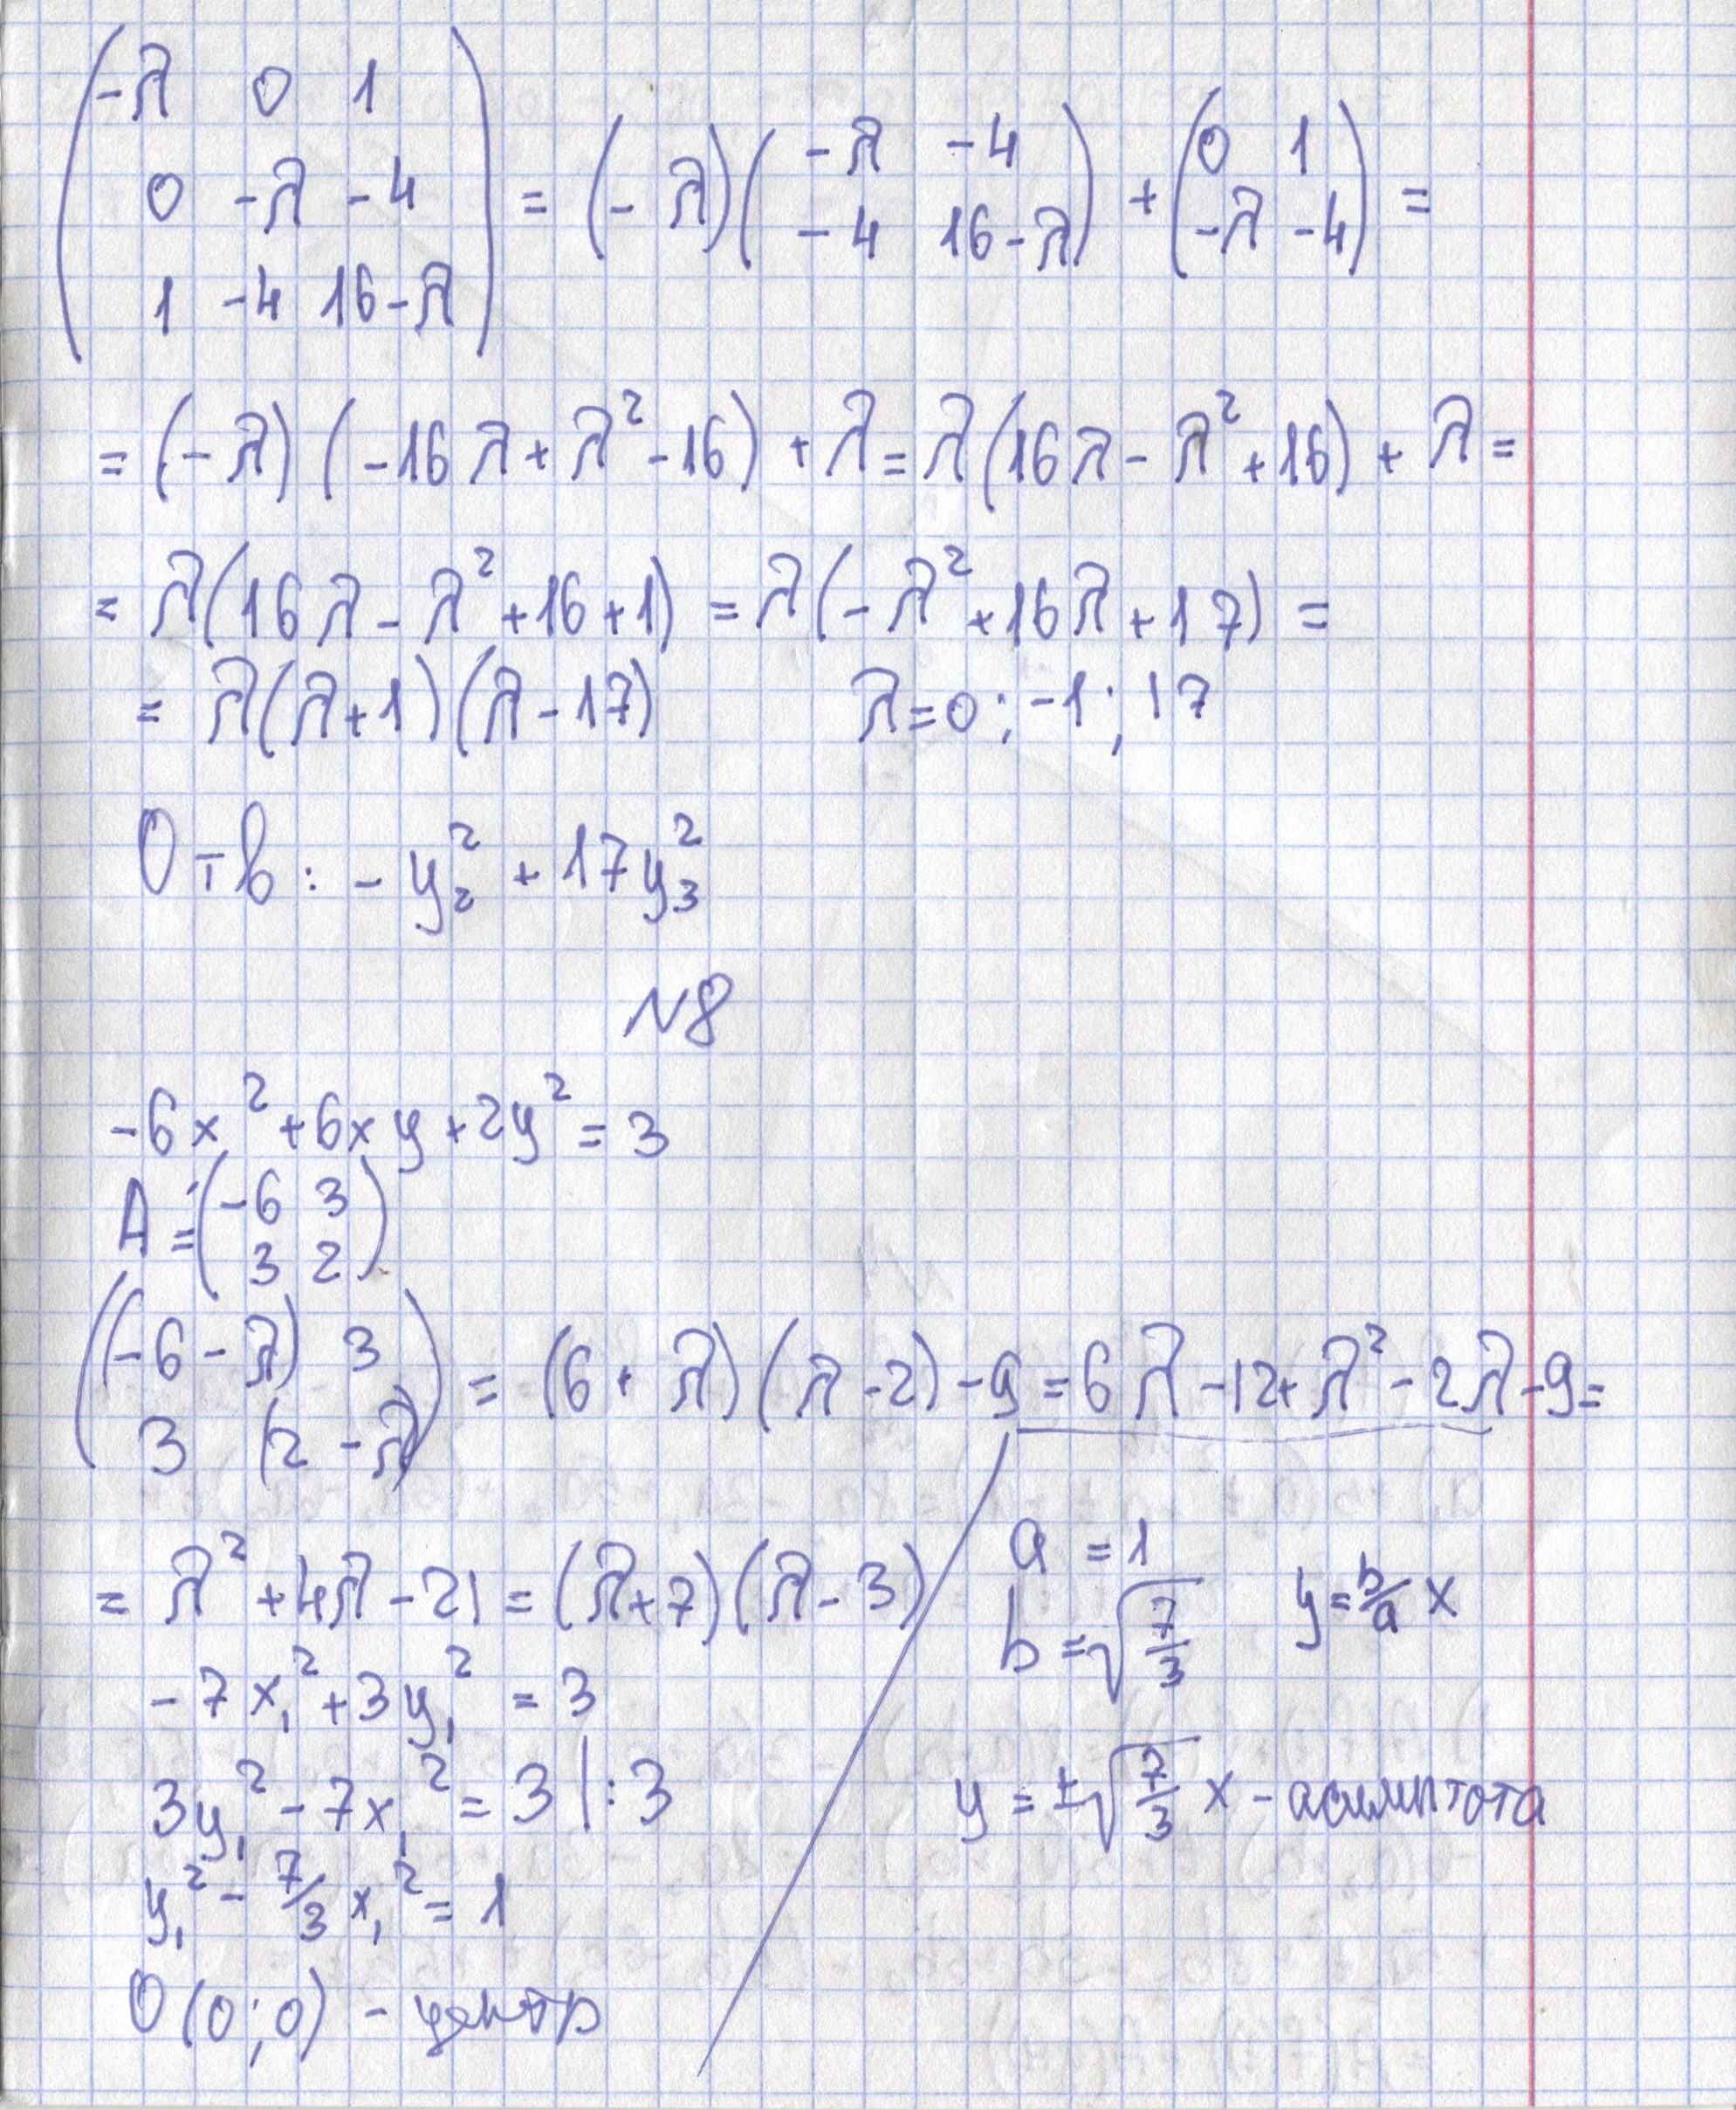 (-λ 0 1
0 -λ -4
1 -4 16-λ) = (-λ)(-λ -4
-4 16-λ) + (0 1
-λ -4) =
= (-λ)(-16λ + λ² - 16) + λ = λ(16λ - λ² + 16) + λ =
= λ(16λ - λ² + 16 + 1) = λ(-λ² + 16λ + 17) =
= λ(λ+1)(λ-17) λ = 0; -1; 17
Отв: - y₂² + 17y₃²
N8
-6x² + 6xy + 2y² = 3
A = (-6 3
3 2)
((-6-λ) 3
3 (2-λ)) = (6+λ)(λ-2) - 9 = 6λ - 12 + λ² - 2λ - 9 =
= λ² + 4λ - 21 = (λ+7)(λ-3)
-7x₁² + 3y₁² = 3
3y₁² - 7x₁² = 3 |:3
y₁² - 7/3 x₁² = 1
O(0;0) - центр
a = 1
b = √7/3 y = b/a x
y = ±√7/3 x - асимптота